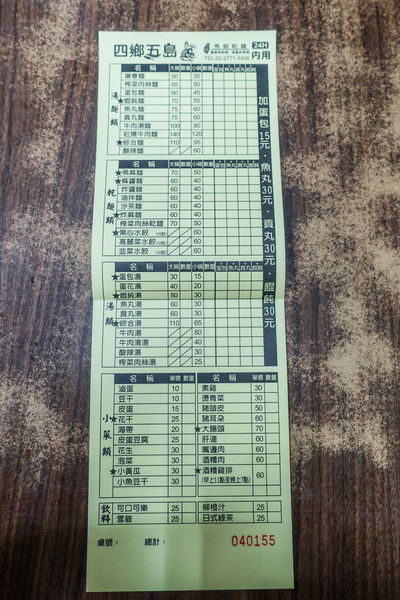 四鄉五島 馬祖乾麵 24H
TEL:02-2771-5406 內用
湯麵類
名稱 大碗 數量 小碗 數量 +蛋包 +魚丸 +貢丸 +餛飩
陽春麵 50 35
榨菜肉絲麵 65 50
蛋包麵 60 45
★餛飩麵 70 55
魚丸麵 75 60
貢丸麵 75 60
牛肉湯麵 100 80
紅燒牛肉麵 140 120
★綜合麵 110 95
酸辣麵 60
加蛋包15元·魚丸30元·貢丸30元·餛飩30元
乾麵類
名稱 大碗 數量 小碗 數量 +蛋包 +魚丸 +貢丸 +餛飩
★黑麻麵 70 50
★麻醬麵 60 40
炸醬麵 60 40
油拌麵 60 40
沙茶麵 60 40
★炸麻麵 60 40
榨菜肉絲乾麵 70 50
★黑心水餃 60
高麗菜水餃 60
韭菜水餃 60
湯類
名稱 大碗 數量 小碗 數量 +蛋包 +魚丸 +貢丸 +餛飩
★蛋包湯 30 15
蛋花湯 40 20
★餛飩湯 50 30
魚丸湯 60 30
貢丸湯 60 30
★綜合湯 110 65
牛肉湯 80
牛肉清湯 40
酸辣湯 30
榨菜肉絲湯 25
小菜類
名稱 單價 數量 名稱 單價 數量
滷蛋 10 素雞 30
豆干 10 燙青菜 30
皮蛋 15 豬頭皮 50
★花干 25 豬耳朵 60
海帶 20 ★大腸頭 70
皮蛋豆腐 25 肝連 60
花生 30 嘴邊肉 60
泡菜 30 酒糟肉 60
★小黃瓜 30 ★酒糟雞排 60
小魚豆干 30 (早上11點至晚上7點)
飲料
可口可樂 25 柳橙汁 25
雪碧 25 日式綠茶 25
桌號： 總計： 040155